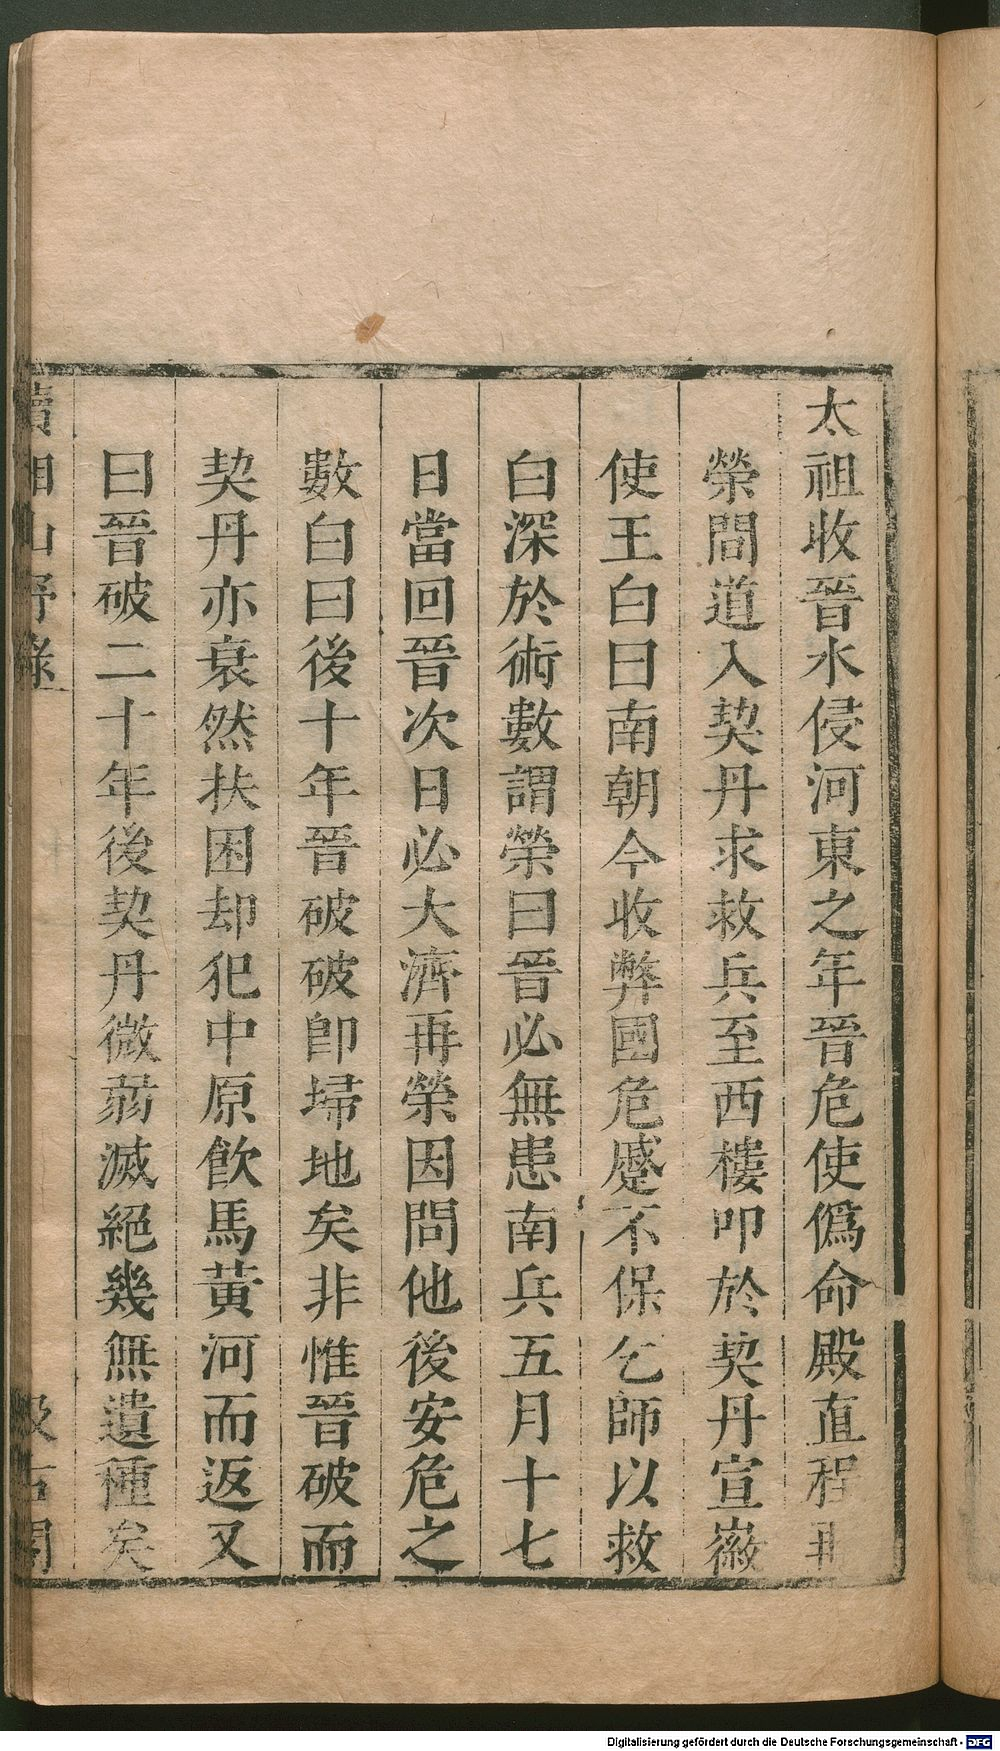 太祖收晉水侵河東之年晉危使僞命殿直程再
榮間道入契丹求救兵至西樓叩於契丹宣徽
使王白曰南朝今收弊國危蹙不保乞師以救
白深於術數謂榮曰晉必無患南兵五月十七
日當回晉次日必大濟再榮因問他後安危之
數白曰後十年晉破破卽埽地矣非惟晉破而
契丹亦衰然扶困却犯中原飮馬黃河而返又
曰晉破二十年後契丹微弱滅絕幾無遺種矣
續湘山野錄
汲古閣
Digitalisierung gefördert durch die Deutsche Forschungsgemeinschaft - DFG